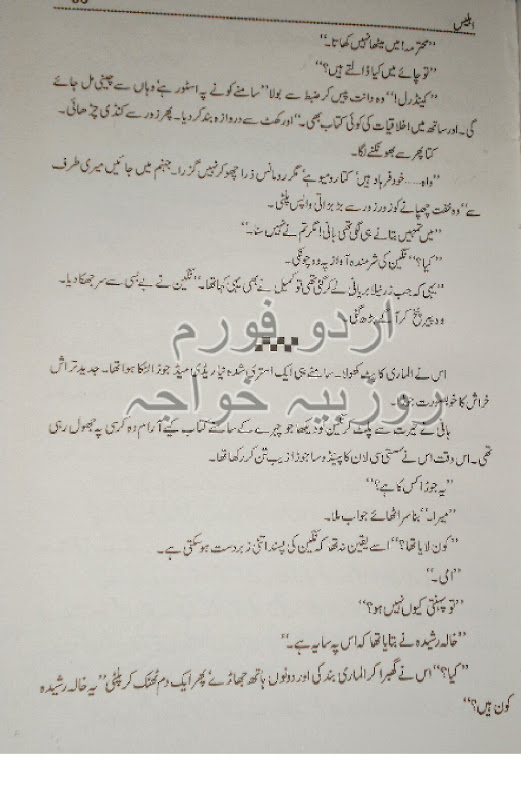 ابلیس
”محترمہ! میں میٹھا نہیں کھاتا۔“
”تو چائے میں کیا ڈالتے ہیں؟“
”کینڈرل!“ وہ دانت پیس کر ضبط سے بولا ”سامنے کونے پہ اسٹور ہے‘ وہاں سے چینی مل جائے
گی۔ اور ساتھ میں اخلاقیات کی کوئی کتاب بھی۔“ اور کھٹ سے دروازہ بند کر دیا۔ پھر زور سے کنڈی چڑھائی۔
کتا پھر سے بھونکنے لگا۔
”واہ..... خود فرہاد ہیں‘ کتا رومیو ہے‘ مگر رومانس ذرا چھو کر نہیں گزرا۔ جہنم میں جائیں میری طرف
سے“ وہ خفت چھپانے کو زور زور سے بڑبڑاتی واپس پلٹی۔
”میں تمہیں بتانے ہی لگی تھی ہانی! مگر تم نے نہیں سنا۔“
”کیا؟“ نگین کی شرمندہ آواز پہ وہ چونکی۔
”یہی کہ جب زرنیلا بریانی لے کر گئی تھی تو کمیل نے بھی یہی کہا تھا۔“ نگین نے بے بسی سے سر جھکا دیا۔
وہ پیر پٹخ کر آگے بڑھ گئی۔
اردو فورم
اس نے الماری کا پٹ کھولا۔ سامنے ہی ایک استری شدہ نیا ریڈی میڈ جوڑا لٹکا ہوا تھا۔ جدید تراش
خراش کا خوبصورت جوڑا۔
روزبیہ خواجہ
ہانی نے حیرت سے پلٹ کر نگین کو دیکھا جو چہرے کے سامنے کتاب کیے آرام دہ کرسی پہ جھول رہی
تھی۔ اس وقت اس نے سستی سی لان کا پینڈو سا جوڑا زیب تن کر رکھا تھا۔
”یہ جوڑا کس کا ہے؟“
”میرا۔“ بنا سر اٹھائے جواب ملا۔
”کون لایا تھا؟“ اسے یقین نہ تھا کہ نگین کی پسند اتنی زبردست ہو سکتی ہے۔
”امی۔“
”تو پہنتی کیوں نہیں ہو؟“
”خالہ رشیدہ نے بتایا تھا کہ اس پہ سایہ ہے۔“
”کیا؟“ اس نے گھبرا کر الماری بند کی اور دونوں ہاتھ جھاڑے‘ پھر ایک دم ٹھٹک کر پلٹی ”یہ خالہ رشیدہ
کون ہیں؟“